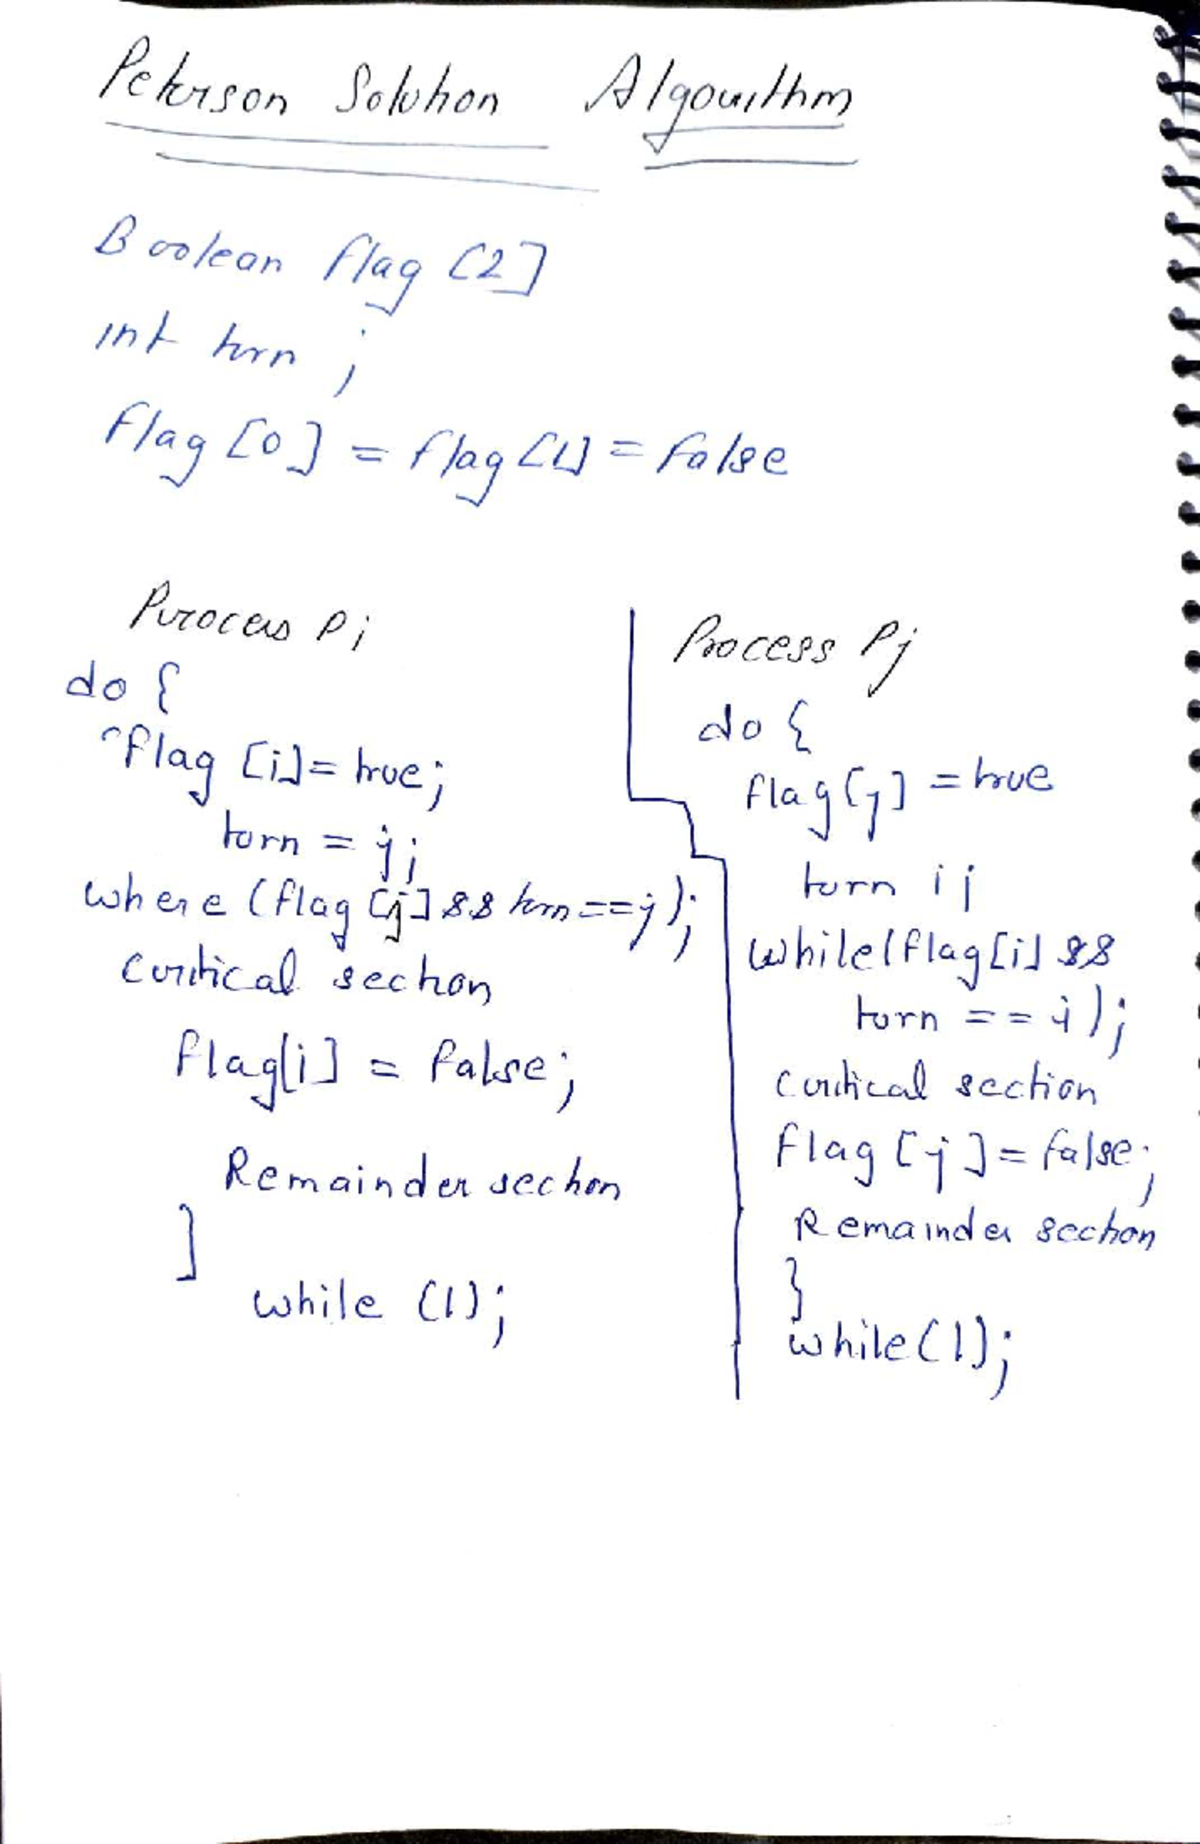 Peterson Solution Algorithm
Boolean flag [2]
int turn ;
flag [0] = flag [1] = false
Process Pi
do {
flag [i] = true;
turn = j;
where (flag [j] && turn == j);
critical section
flag[i] = false;
Remainder section
]
while (1);
Process Pj
do {
flag [j] = true
turn i;
while (flag [i] &&
turn == i);
critical section
flag [j] = false;
Remainder section
}
while (1);